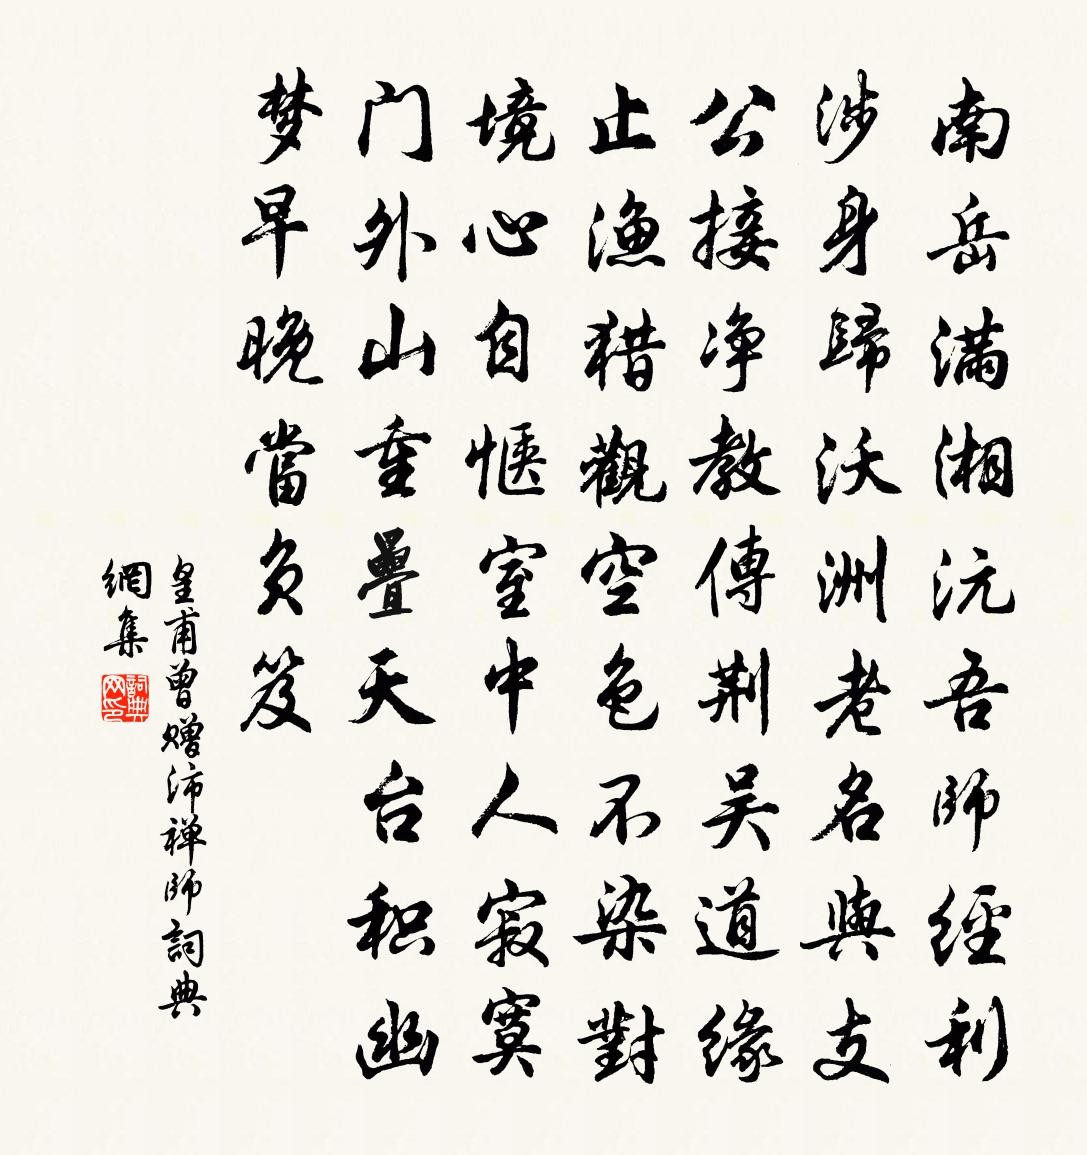 南岳满湘沅吾師經利
涉身歸沃洲老名與支
公接净教傳荆吴道缘
止漁猎觀空色不染對
境心自惬室中人寂寞
门外山重疊天台积幽
梦早晚當负笈
皇甫曾赠沛禅師詞典
網集
詞典网印